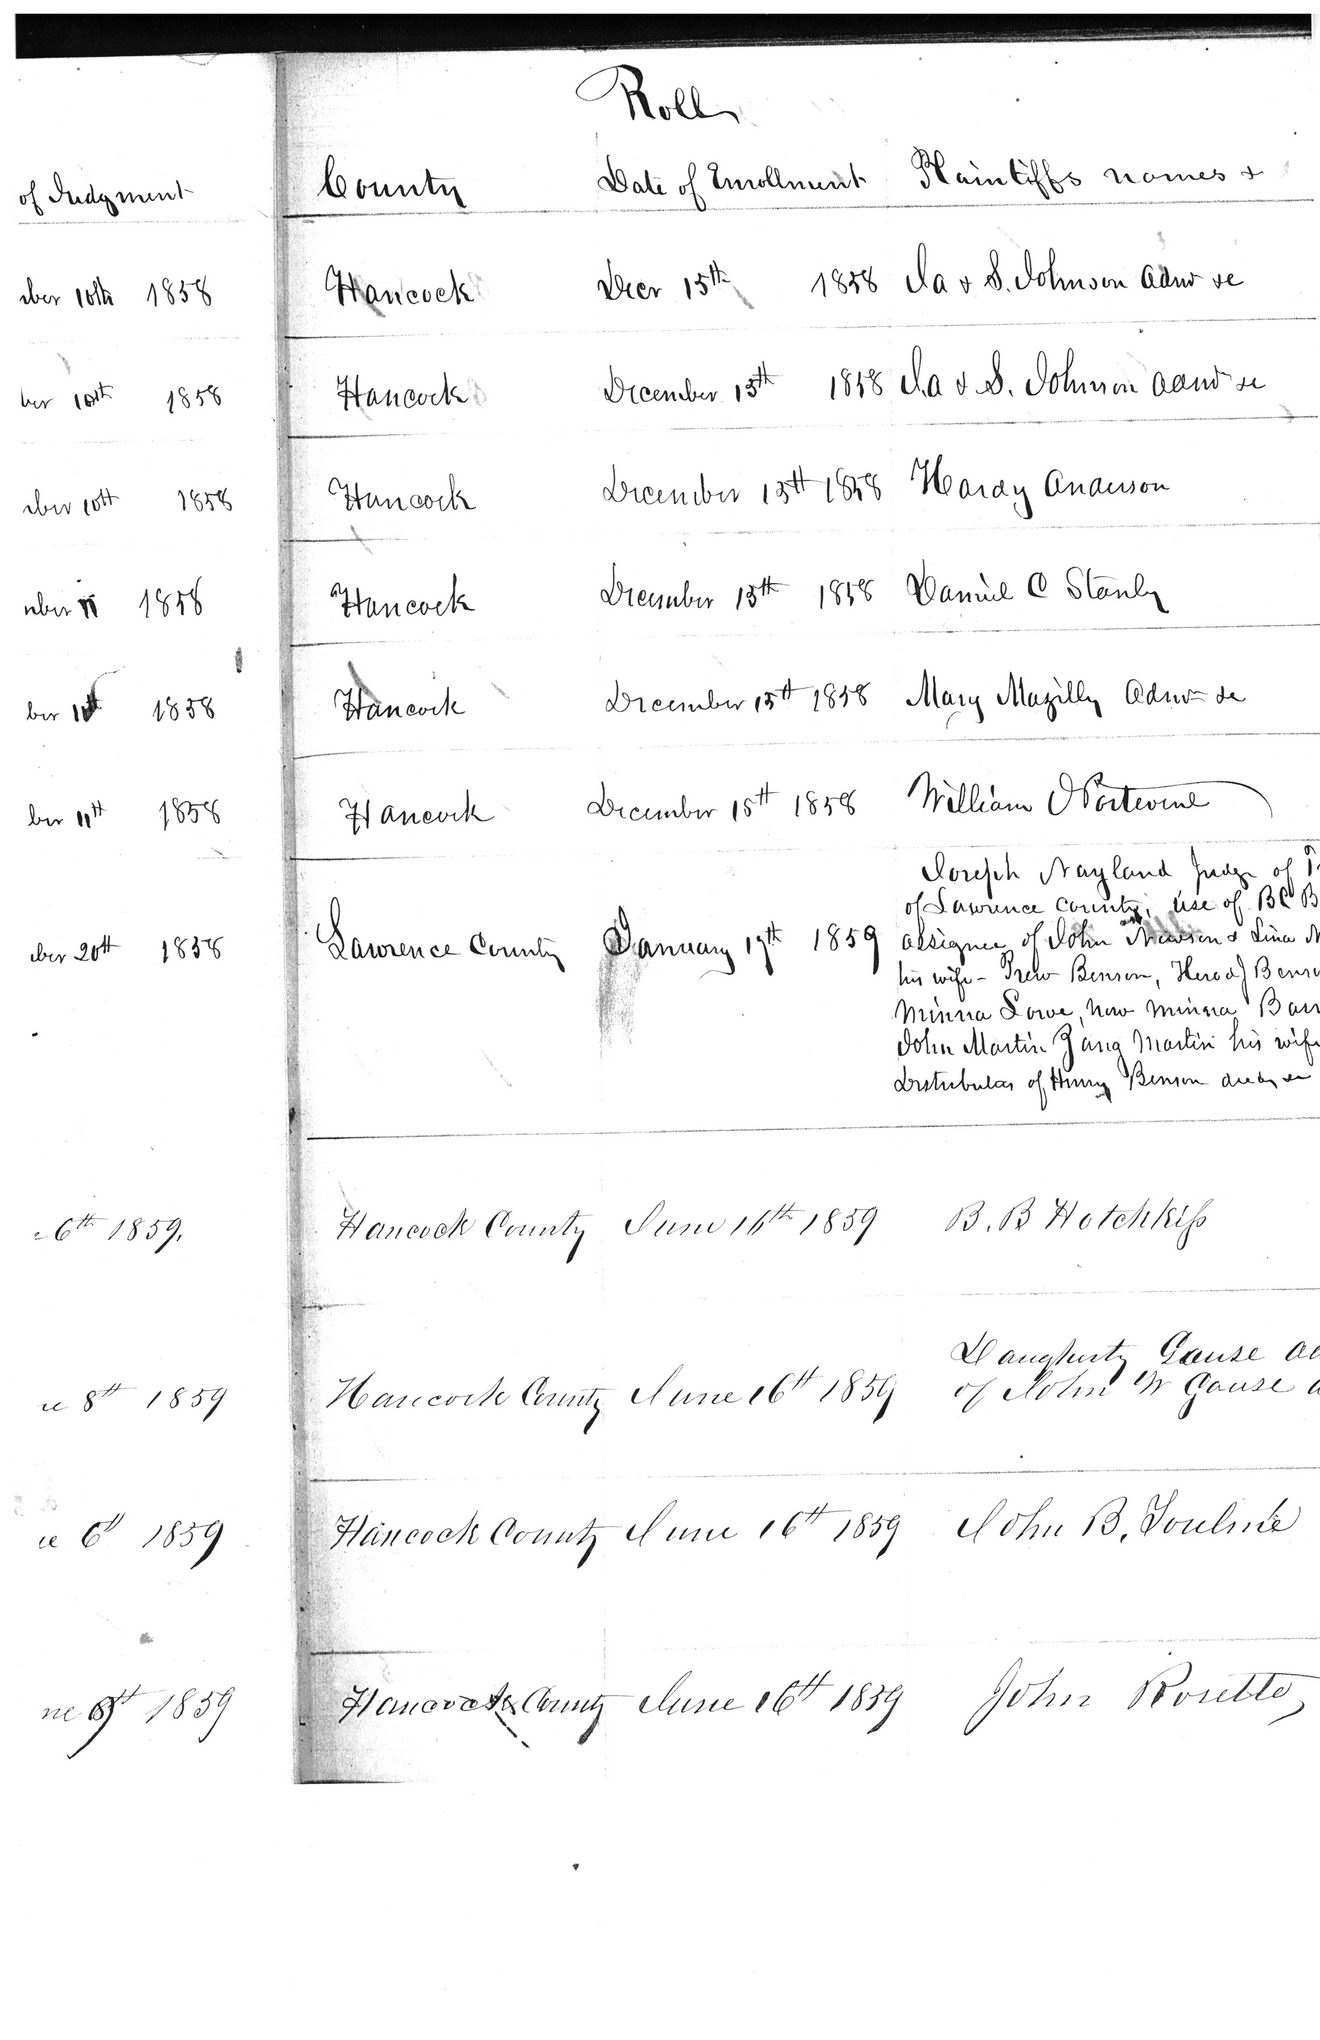 Roll
of Judgment County Date of Enrollment Plaintiffs names &
ber 10th 1858 Hancock Decr 15th 1858 Ja & S. Johnson Admr &c
ber 10th 1858 Hancock December 15th 1858 Ja & S. Johnson Admr &c
ber 10th 1858 Hancock December 15th 1858 Hardy Anderson
mber 11 1858 Hancock December 15th 1858 Daniel C Stanly
ber 11th 1858 Hancock December 15th 1858 Mary Mazilly Admr &c
ber 11th 1858 Hancock December 15th 1858 William Portevine
Joseph Nayland Judge of
of Lawrence County, use of B C B
ber 20th 1858 Lawrence County January 17th 1859 assignee of John Newson &
his wife - Benson,
Minna Lowe, now Minna
John Martin Martin his wife
Distributes of Henry Benson
6th 1859. Hancock County June 16th 1859 B. B Hotchkiss
Daugherty Gause
ne 8th 1859 Hancock County June 16th 1859 of John W Gause
ne 6th 1859 Hancock County June 16th 1859 John B, Toulme
ne 8th 1859 Hancock County June 16th 1859 John Rosette